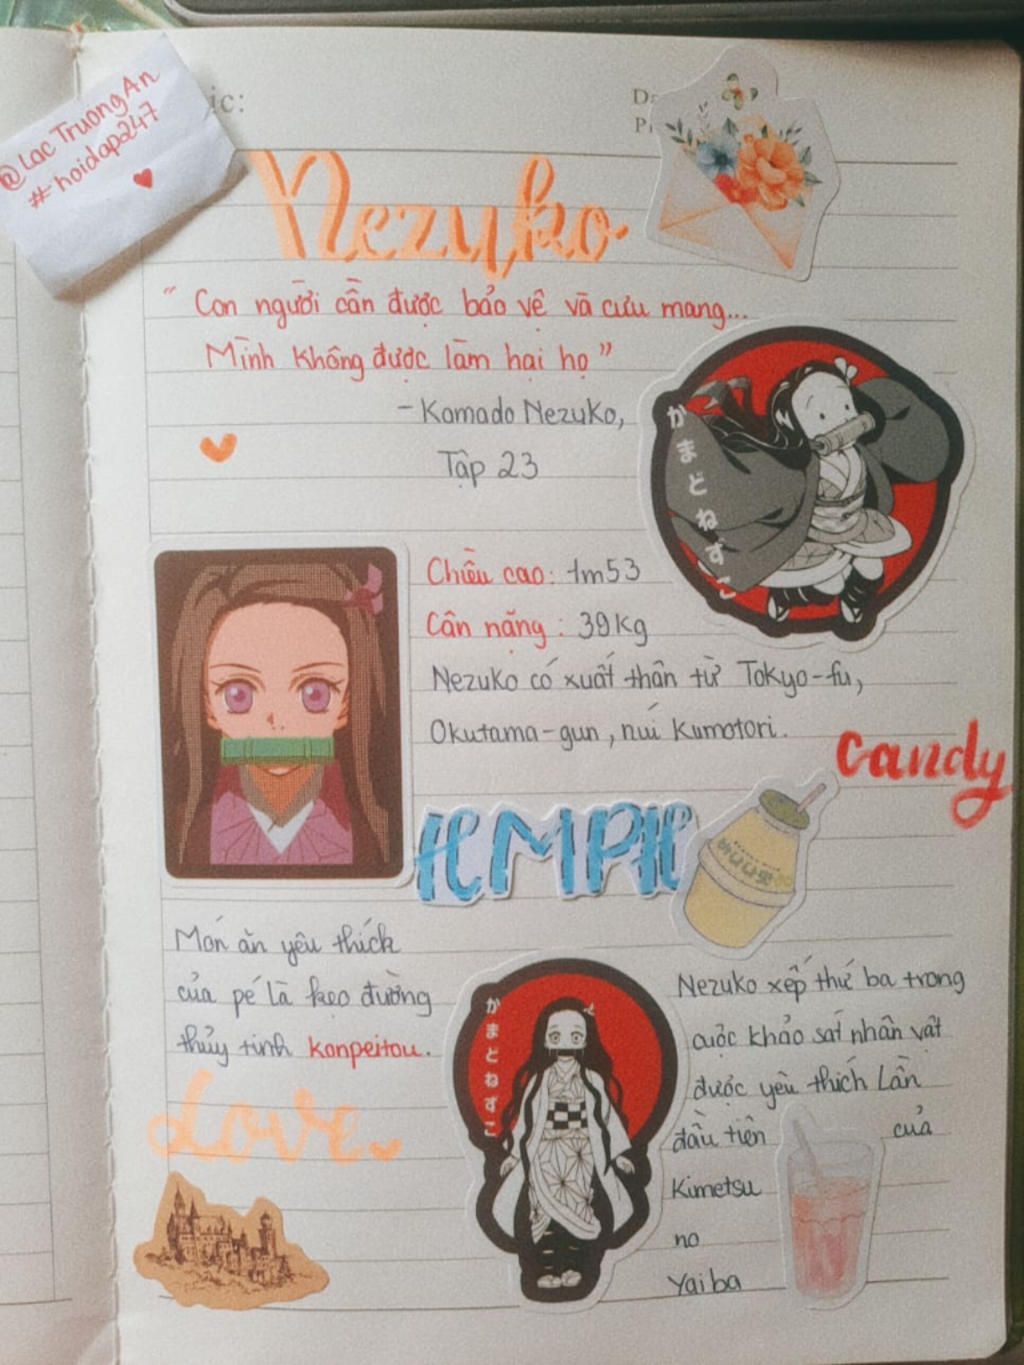 @LacTruongAn
#hoidap247
ic:
Nezuko
" Con người cần được bảo vệ và cưu mang...
Mình không được làm hại họ "
- Komado Nezuko,
Tập 23
かまどねずこ
Chiều cao: 1m53
Cân nặng: 39kg
Nezuko có xuất thân từ Tokyo-fu,
Okutama-gun, núi Kumotori.
candy
바나나맛
Món ăn yêu thích
của pé là kẹo đường
thủy tinh konpeitou.
Love
かまどねずこ
Nezuko xếp thứ ba trong
cuộc khảo sát nhân vật
được yêu thích Lần
đầu tiên của
Kimetsu
no
Yaiba